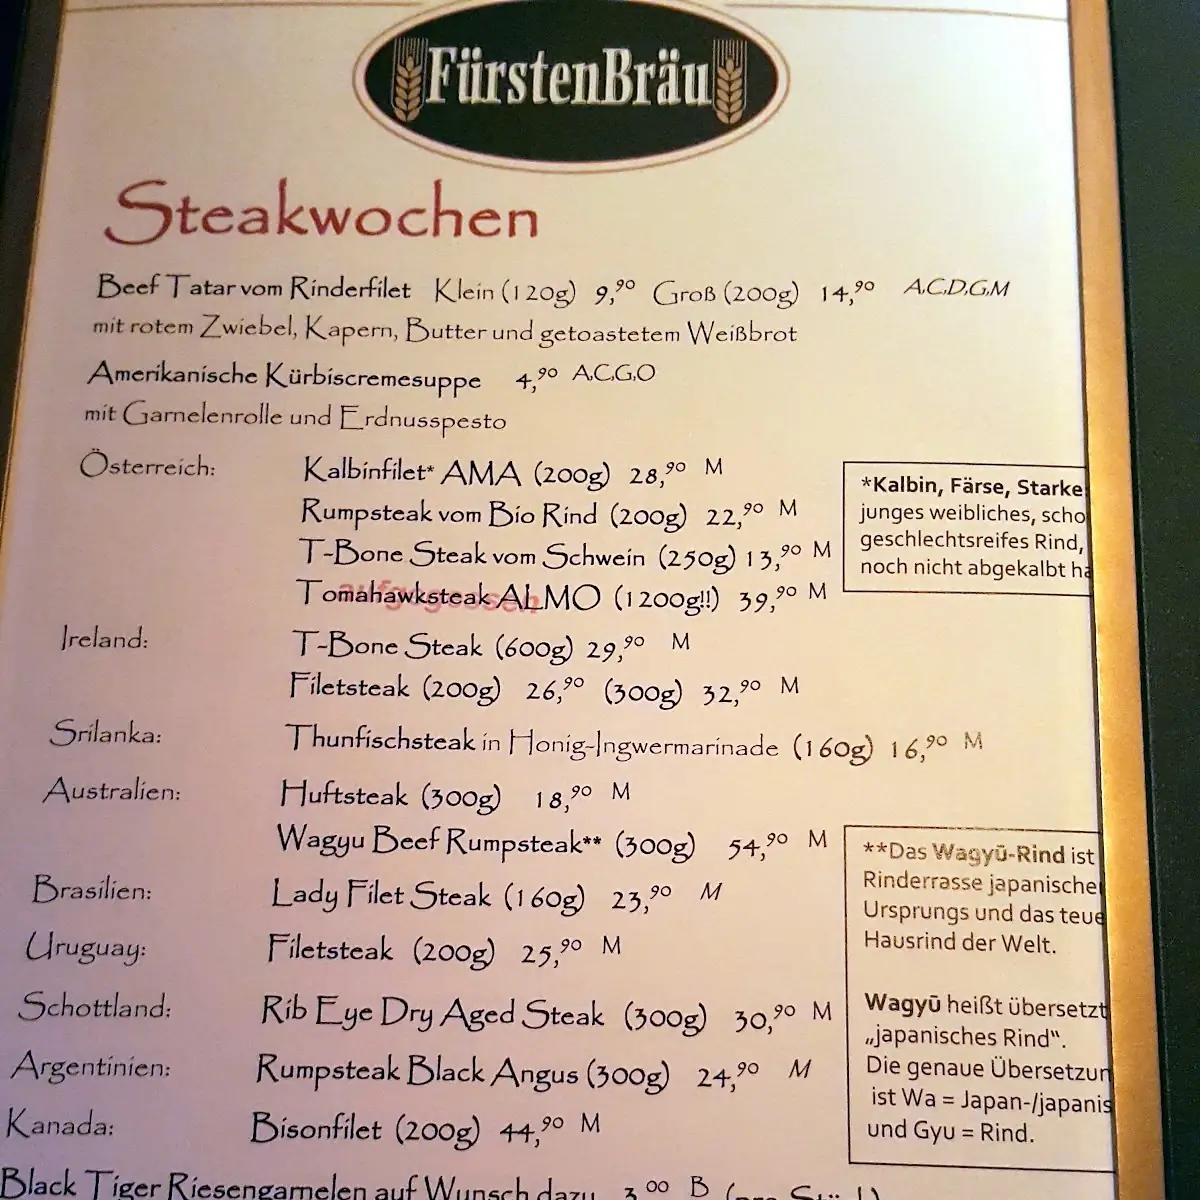 FürstenBräu
Steakwochen
Beef Tatar vom Rinderfilet Klein (120g) 9,90 Groß (200g) 14,90 A,C,D,G,M
mit rotem Zwiebel, Kapern, Butter und getoastetem Weißbrot
Amerikanische Kürbiscremesuppe 4,90 A,C,G,O
mit Garnelenrolle und Erdnusspesto
Österreich: Kalbinfilet* AMA (200g) 28,90 M
Rumpsteak vom Bio Rind (200g) 22,90 M
T-Bone Steak vom Schwein (250g) 13,90 M
Tomahawksteak ALMO (1200g!!) 39,90 M
aufgegessen
*Kalbin, Färse, Starke
junges weibliches, scho
geschlechtsreifes Rind,
noch nicht abgekalbt ha
Ireland: T-Bone Steak (600g) 29,90 M
Filetsteak (200g) 26,90 (300g) 32,90 M
Srilanka: Thunfischsteak in Honig-Ingwermarinade (160g) 16,90 M
Australien: Huftsteak (300g) 18,90 M
Wagyu Beef Rumpsteak** (300g) 54,90 M
Brasilien: Lady Filet Steak (160g) 23,90 M
Uruguay: Filetsteak (200g) 25,90 M
Schottland: Rib Eye Dry Aged Steak (300g) 30,90 M
Argentinien: Rumpsteak Black Angus (300g) 24,90 M
Kanada: Bisonfilet (200g) 44,90 M
**Das Wagyū-Rind ist
Rinderrasse japanische
Ursprungs und das teue
Hausrind der Welt.
Wagyū heißt übersetzt
„japanisches Rind“.
Die genaue Übersetzun
ist Wa = Japan-/japanis
und Gyu = Rind.
Black Tiger Riesengarnelen auf Wunsch dazu 3,00 B